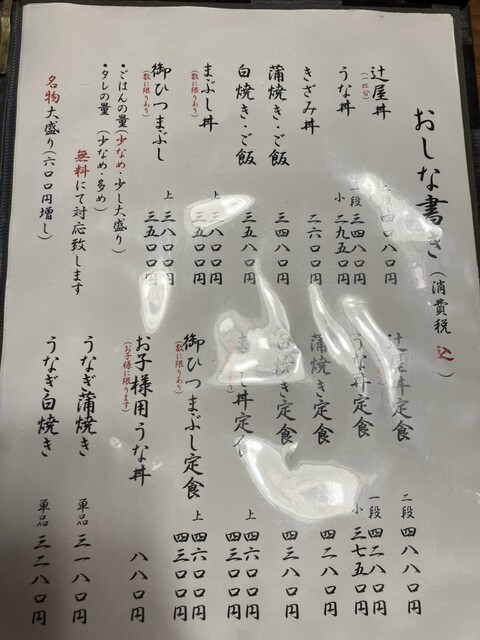 おしな書き（消費税込）
辻屋丼 二段 四〇八〇円
うな丼 一段 三四八〇円
小 二九五〇円
きざみ丼 二六〇〇円
蒲焼き・ご飯 三四八〇円
白焼き・ご飯 三五八〇円
まぶし丼 上 三八〇〇円
（数に限りあり） 三五〇〇円
御ひつまぶし 上 三八〇〇円
（数に限りあり） 三五〇〇円
・ごはんの量（少なめ・少し大盛り）
・タレの量（少なめ・多め）
無料にて対応致します
名物大盛り（六〇〇円増し）
辻屋丼定食 二段 四八八〇円
うな丼定食 一段 四二八〇円
小 三七五〇円
蒲焼き定食 四二八〇円
白焼き定食 四三八〇円
まぶし丼定食 上 四六〇〇円
四三〇〇円
御ひつまぶし定食 上 四六〇〇円
（数に限りあり） 四三〇〇円
お子様用うな丼 八八〇円
（お子様に限ります）
うなぎ蒲焼き 単品 三一八〇円
うなぎ白焼き 単品 三二八〇円